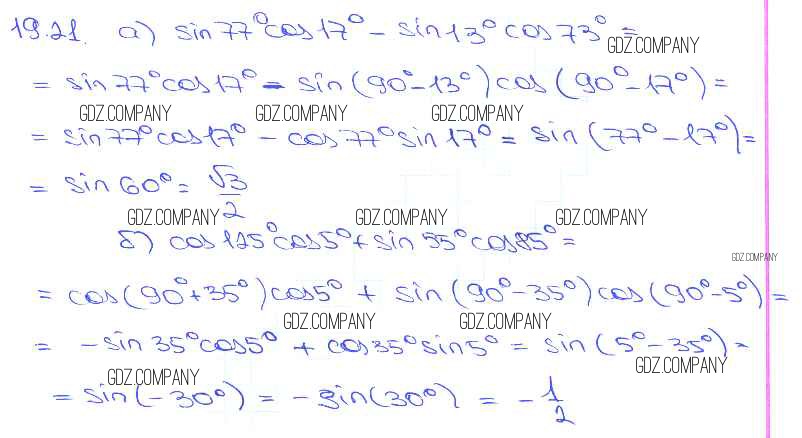 19.21. а) sin77°cos17° - sin13°cos73° =
GDZ.COMPANY
= sin77°cos17° - sin(90°-13°)cos(90°-17°) =
GDZ.COMPANY GDZ.COMPANY GDZ.COMPANY
= sin77°cos17° - cos77°sin17° = sin(77°-17°) =
= sin60° = √3/2
GDZ.COMPANY GDZ.COMPANY GDZ.COMPANY
б) cos125°cos5° + sin55°cos85° =
GDZ.COMPANY
= cos(90°+35°)cos5° + sin(90°-35°)cos(90°-5°) =
GDZ.COMPANY GDZ.COMPANY
= -sin35°cos5° + cos35°sin5° = sin(5°-35°) =
GDZ.COMPANY GDZ.COMPANY
= sin(-30°) = -sin(30°) = -1/2